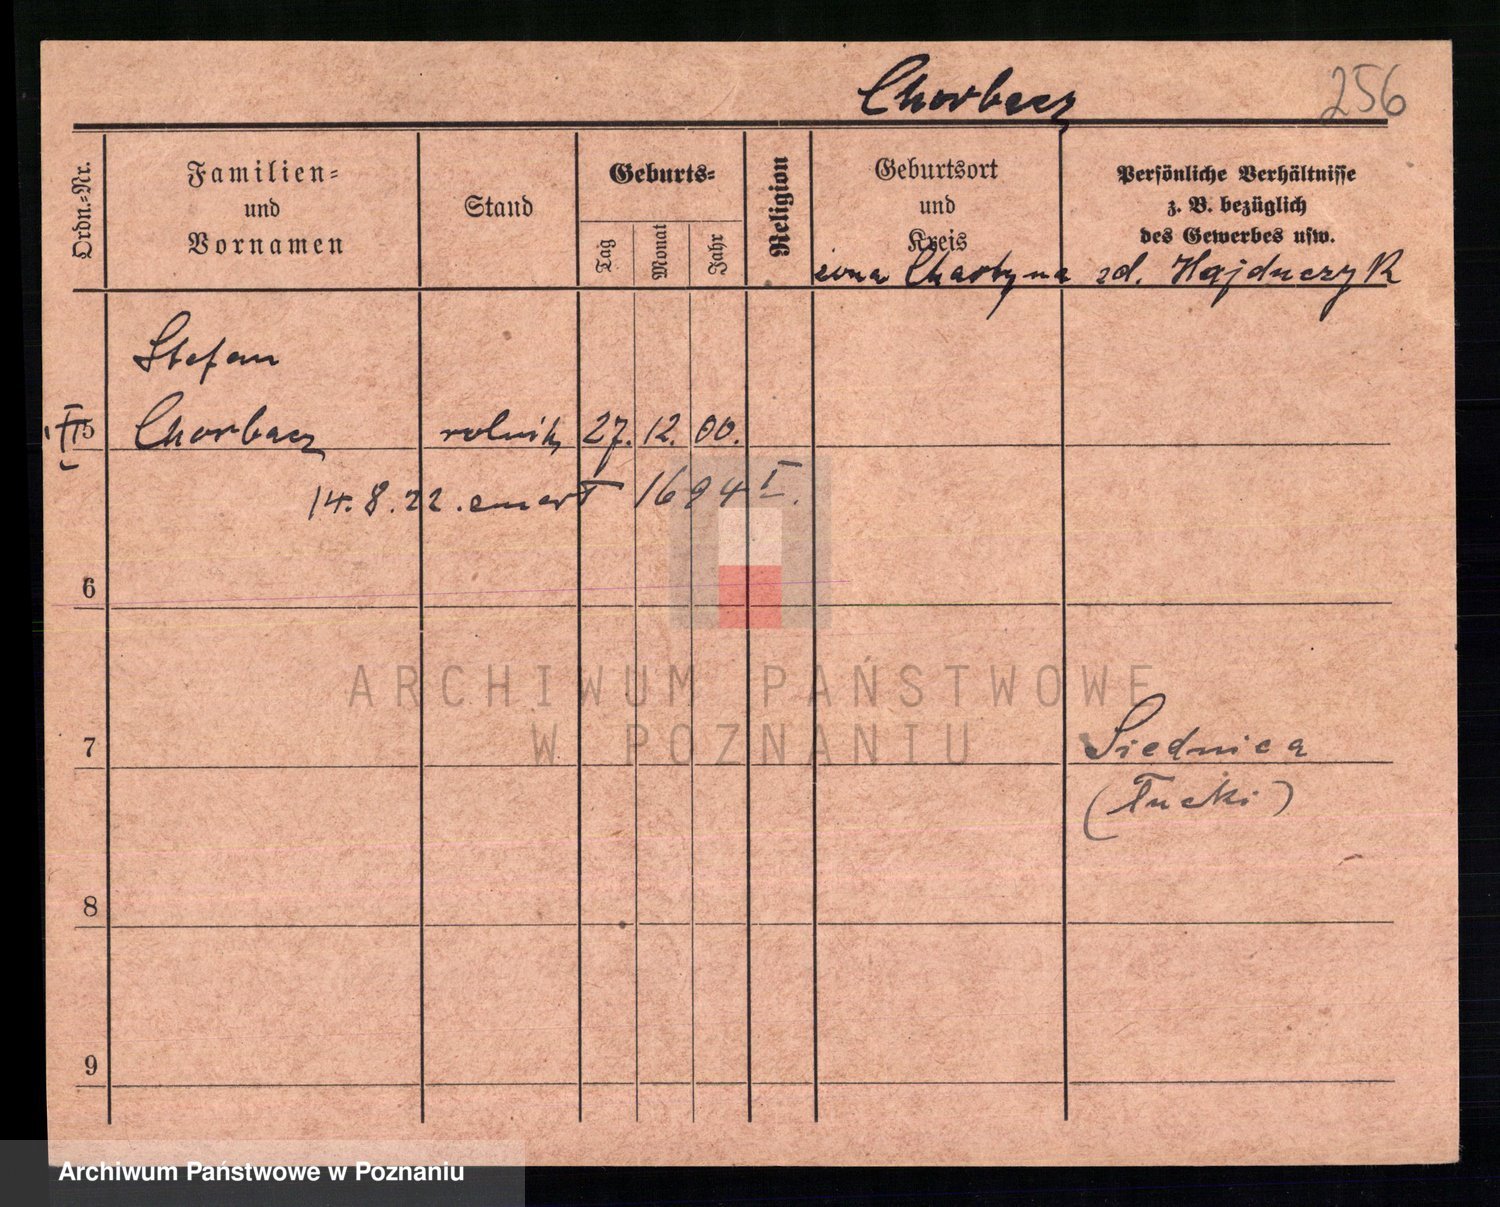 Chorbacz
256
Ordn.-Nr.
Familien-
und
Vornamen
Stand
Geburts-
Tag
Monat
Jahr
Religion
Geburtsort
und
Kreis
Persönliche Verhältnisse
z. B. bezüglich
des Gewerbes usw.
zd. Hajduczyk
Stefan
II 5 Chorbacz rolnik 27. 12. 00.
14. 8. 22. 1694 I.
6
ARCHIWUM PAŃSTWOWE
W POZNANIU
7 Siednica
8
9
Archiwum Państwowe w Poznaniu